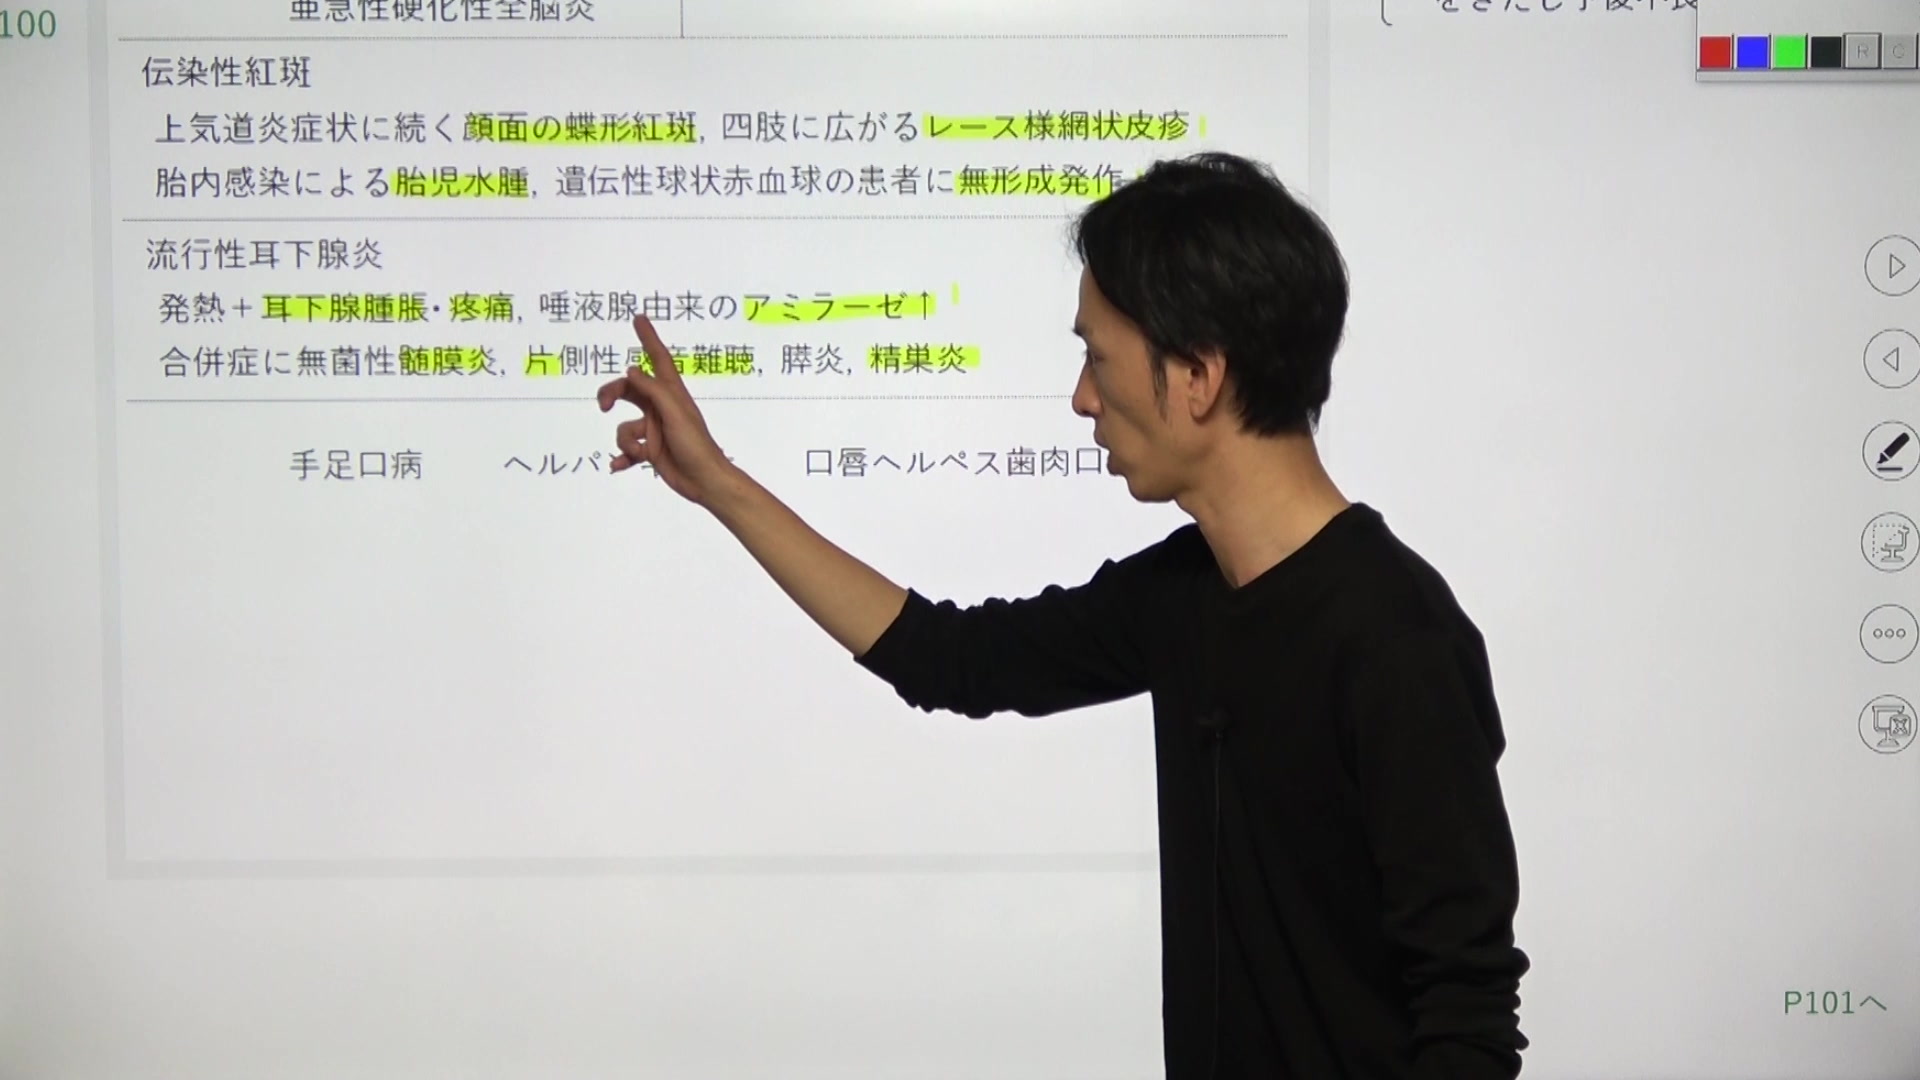 100
亜急性硬化性全脳炎
R C
伝染性紅斑
上気道炎症状に続く顔面の蝶形紅斑, 四肢に広がるレース様網状皮疹
胎内感染による胎児水腫, 遺伝性球状赤血球の患者に無形成発作
流行性耳下腺炎
発熱＋耳下腺腫脹・疼痛, 唾液腺由来のアミラーゼ↑
合併症に無菌性髄膜炎, 片側性感音難聴, 膵炎, 精巣炎
手足口病 ヘルパ 口唇ヘルペス歯肉口
P101へ